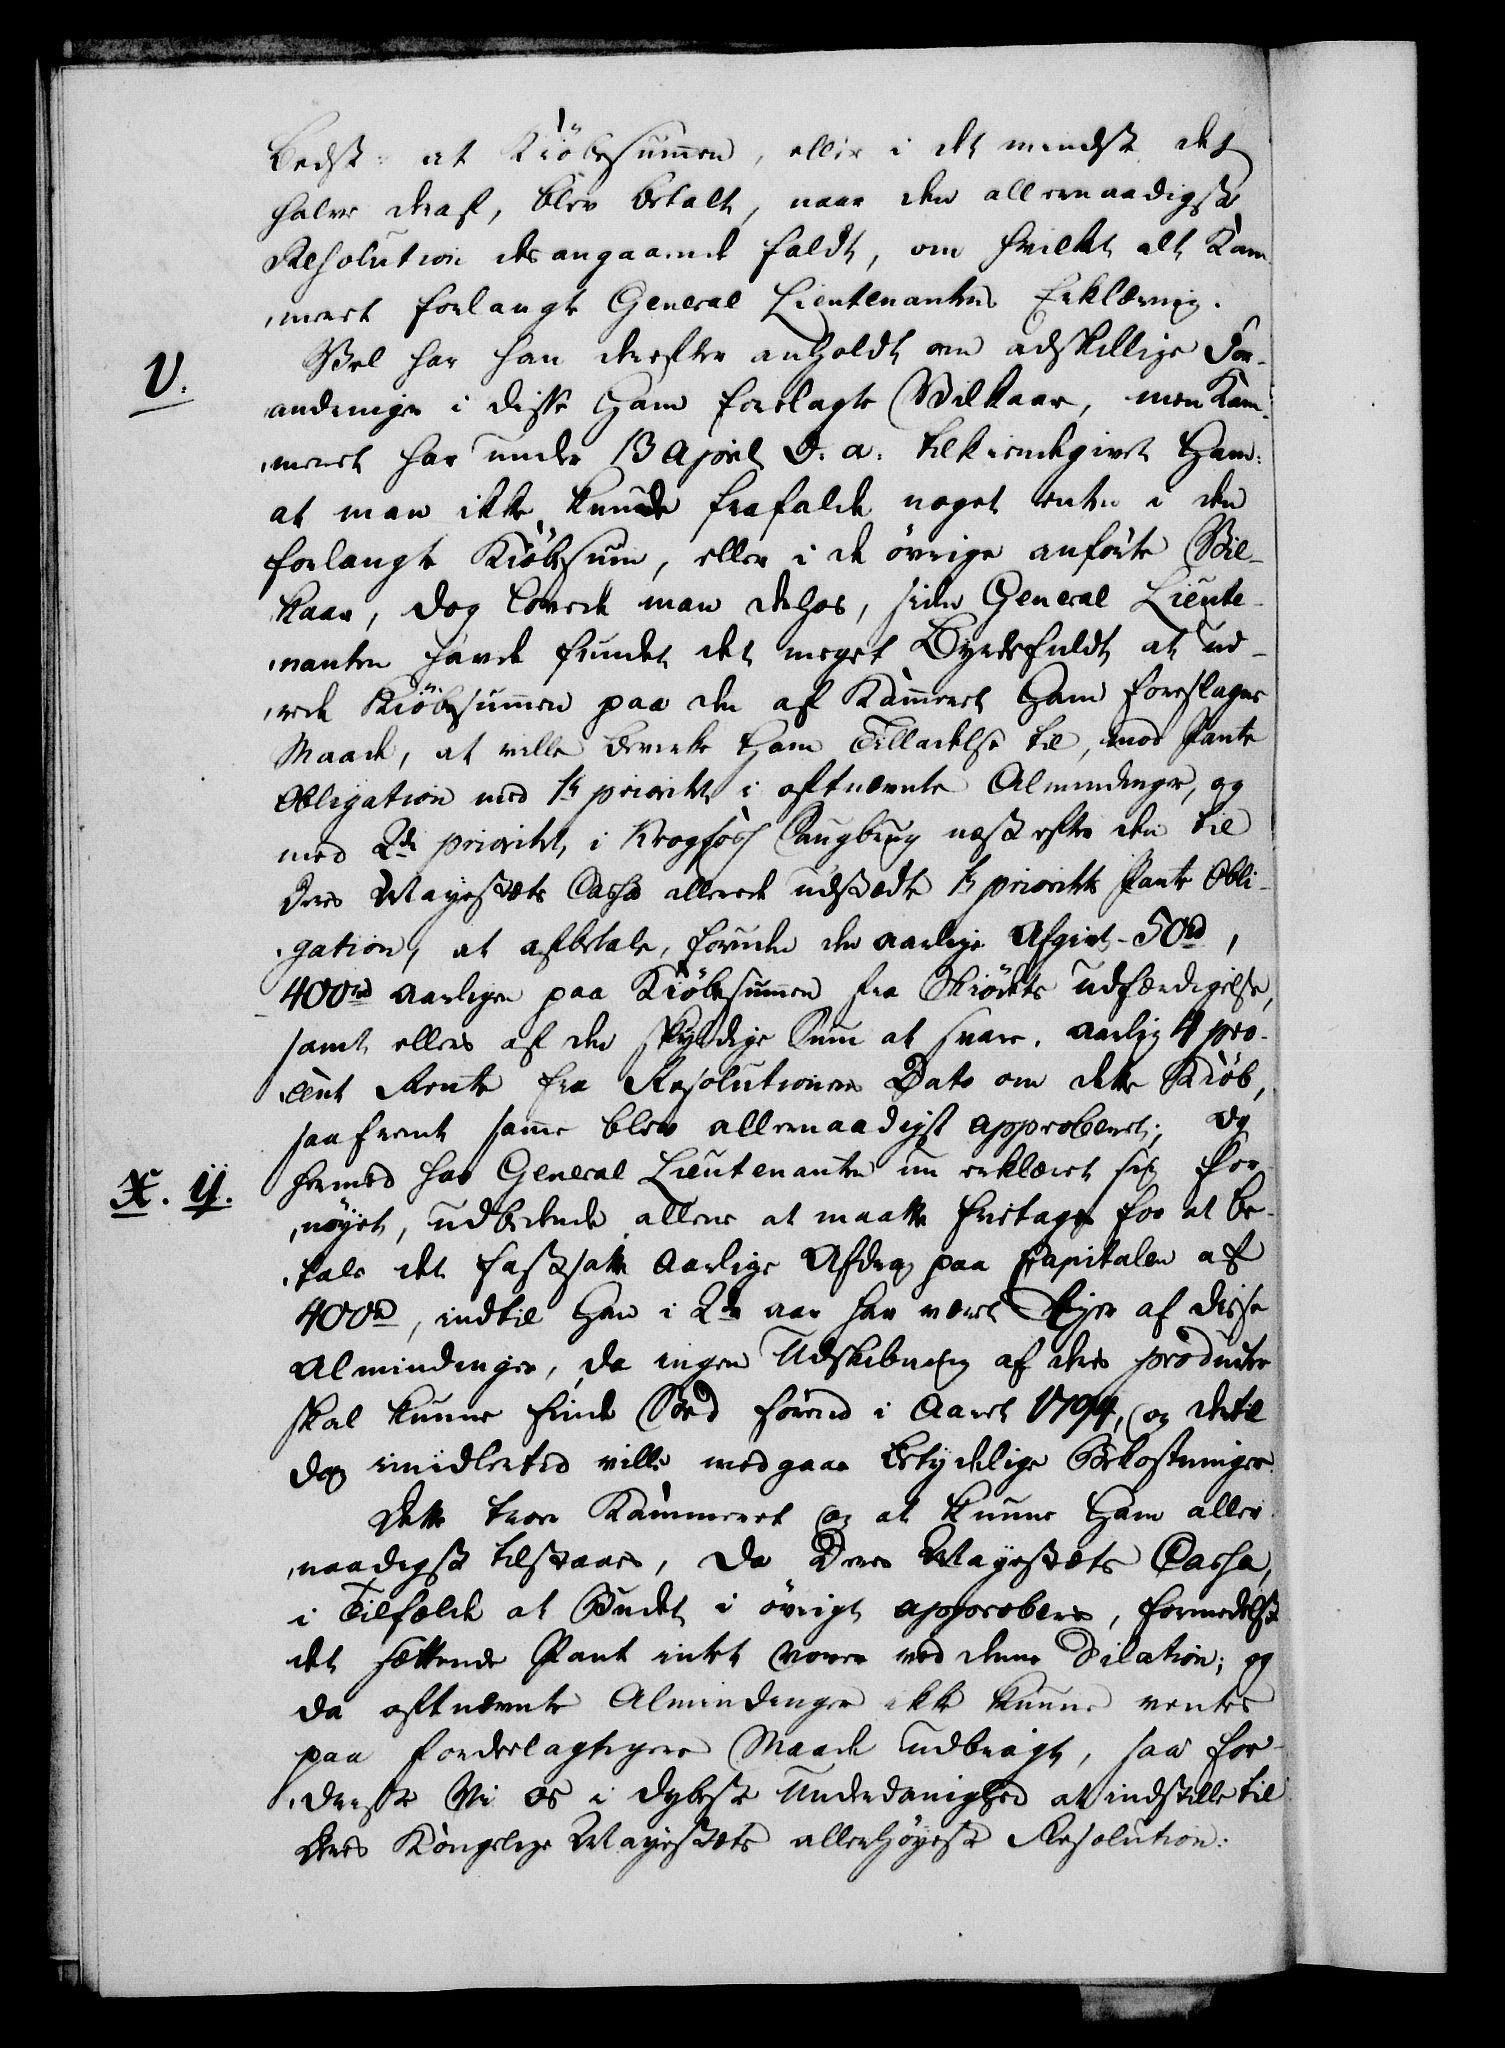 bedst: at Kiöbesummen, eller i det mindste det
halve deraf, blev betalt, naar den allernaadigste
Resolution desangaaende faldt, om hvilket alt Kam-
meret forlangte General Lieutenantens Erklæring.
V. Vel har han derefter anholdt om adskillige For-
andringer i disse Ham forelagte Vilkaar, men Kam-
meret har under 13 April d. a. tilkiendegivet Ham:
at man ikke kunde frafalde noget enten i den
forlangte Kiöbesum, eller i de övrige anförte Vil-
kaar, dog lovede man derhos, siden General Lieute-
nanten havde fundet det meget Byrdefuldt at ud-
rede Kiöbesummen paa den af Kammeret Ham foreslagne
Maade, at ville bevirke Ham Tilladelse til, mod Pante
Obligation med 1te prioritet i oftnævnte Almindinger, og
med 2de prioritet i Krogfoss Saugbrug næst efter den til
Deres Mayestæts Cassa allerede udstædte 1te prioritets Pante Obli-
gation, at afbetale, foruden den aarlige Afgivt 50rd,
400rd aarligen paa Kiöbesummen fra Skiödets Udfærdigelse,
samt ellers af den skyldige Sum at svare aarlig 4 pro-
cent Rente fra Resolutionens Dato om dette Kiöb,
saafremt samme blev allernaadigst approberet; Og
X. ÿ. hermed har General Lieutenanten nu erklæret sig for-
nöyet, udbedende allene at maatte fritages for at be-
tale det fastsatte aarlige Afdrag paa Capitalen af
400rd, indtil Han i 2de aar har været Ejer af disse
Almindinger, da ingen Udskibning af deres producter
skal kunne finde Sted förend i Aaret 1794, og dertil
dog imidlertid ville medgaae betydelige Bekostninger.
Dette troer Kammeret og at kunne Ham aller-
naadigst tilstaaes, da Deres Mayestæts Cassa,
i Tilfælde at Budet i övrigt approberes, formedelst
det sættende Pant intet vover ved denne Dilation; og
da oftnævnte Almindinger ikke kunne ventes
paa fordeelagtigere Maade udbragt, saa for-
driste Vi os i dybeste Underdanighed at indstille til
Deres Kongelige Mayestæts allerhöyeste Resolution: